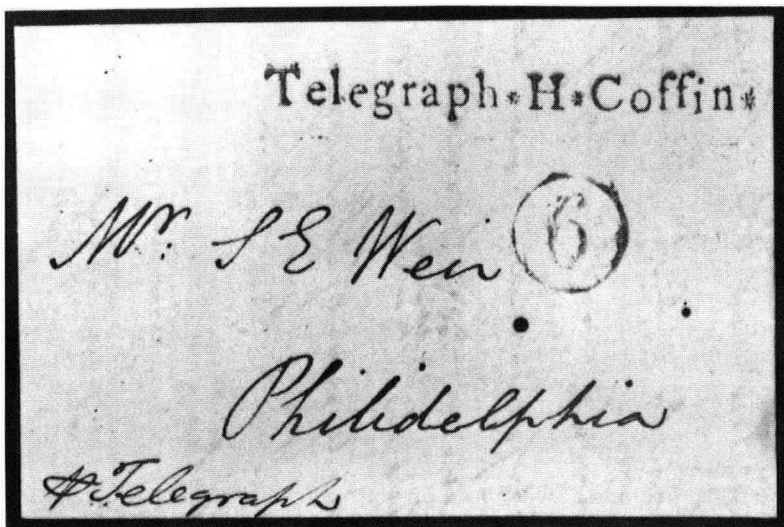 Telegraph*H*Coffin*
Mr. S E Weir
6
Philidelphia
# Telegraph